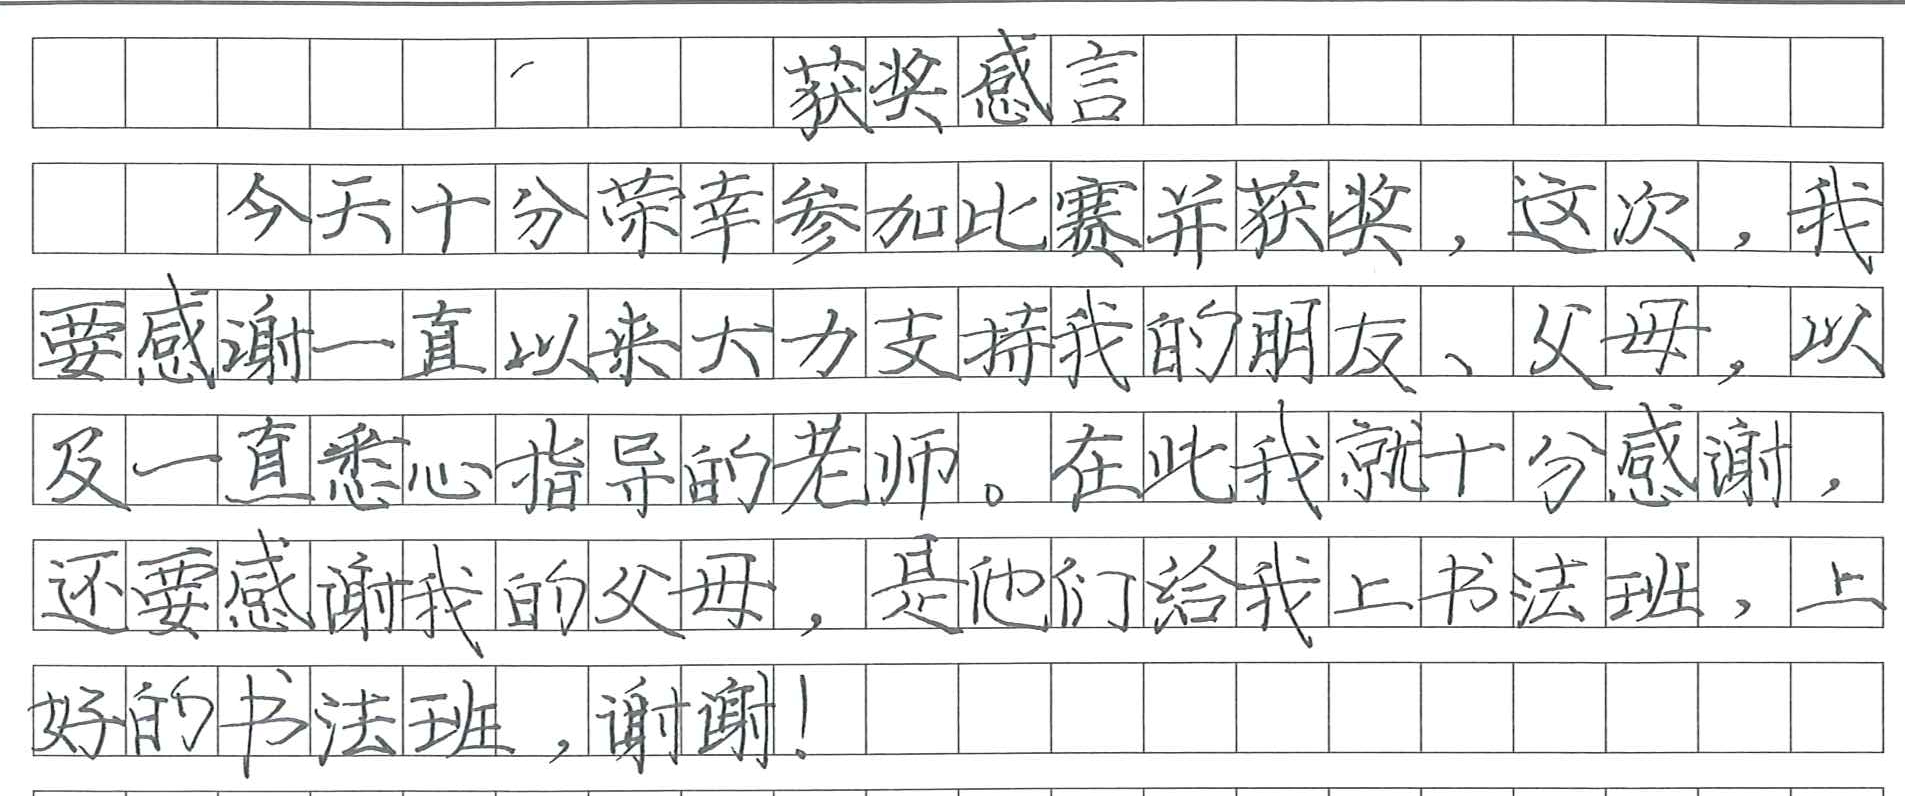 获奖感言
今天十分荣幸参加比赛并获奖，这次，我
要感谢一直以来大力支持我的朋友、父母，以
及一直悉心指导的老师。在此我就十分感谢，
还要感谢我的父母，是他们给我上书法班，上
好的书法班，谢谢！